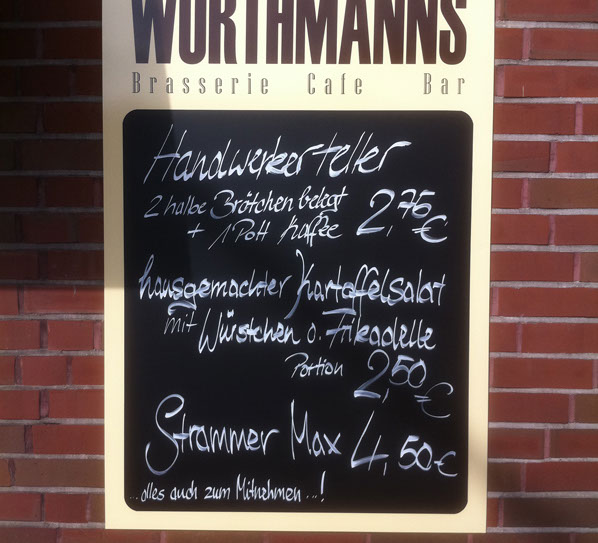 WORTHMANNS
Brasserie Cafe Bar
Handwerkerteller
2 halbe Brötchen belegt
+ 1 Pott Kaffee 2,75€
hausgemachter Kartoffelsalat
mit Würstchen o. Frikadelle
Portion 2,50€
Strammer Max 4,50€
...alles auch zum Mitnehmen...!